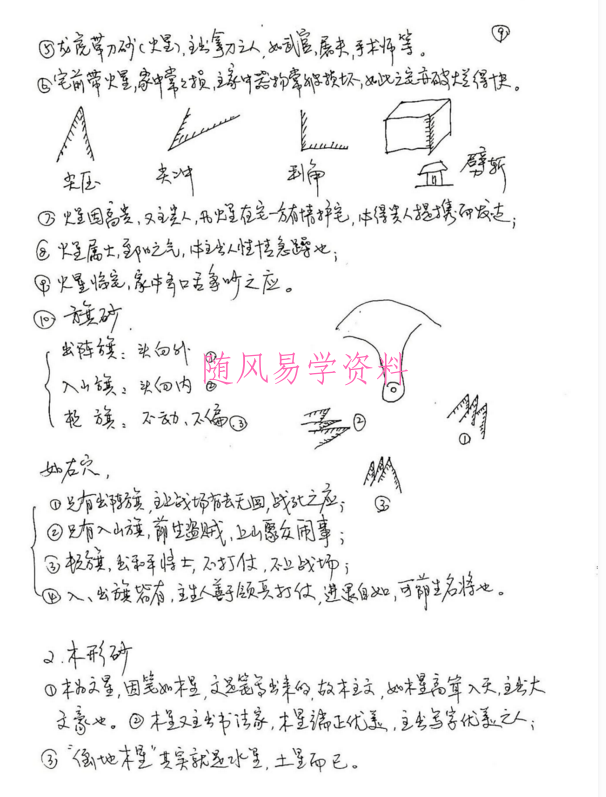 ⑨
⑤龙虎带刀砂(火星),主出拿刀之人,如武官,屠夫,手术师等。
⑥宅前带火星,家中常之损,主家中器物常有损坏,如此之宅亦破大差得快。
尖压 尖冲 到角 劈斩
⑦火星因高贵,又主贵人,如火星在宅一方有情拜宅,中得贵人提携而发达;
⑧火星属土,至阳之气,中主出人性情急躁也;
⑨火星临宅,家中多口舌争吵之应。
⑩旗砂.
出阵旗:头向外①
入山旗:头向内②
枪旗:不动,不偏③
随风易学资料
②
①
如右穴,
③
①只有出阵旗,主战场有去无回,战死之应;
②只有入山旗,前生盗贼,上山聚众闹事;
③枪旗,出和平将士,不打仗,不上战场;
④入、出旗皆有,主生人善于领兵打仗,进退自如,可前生名将也。
2.木形砂
①木为文星,因笔如木星,文是笔写出来的,故木主文,如木星高耸入天,主出大
文豪也。②木星又主出书法家,木星端正优美,主出写字优美之人;
③“倒地木星”其实就是水星,土星而已。